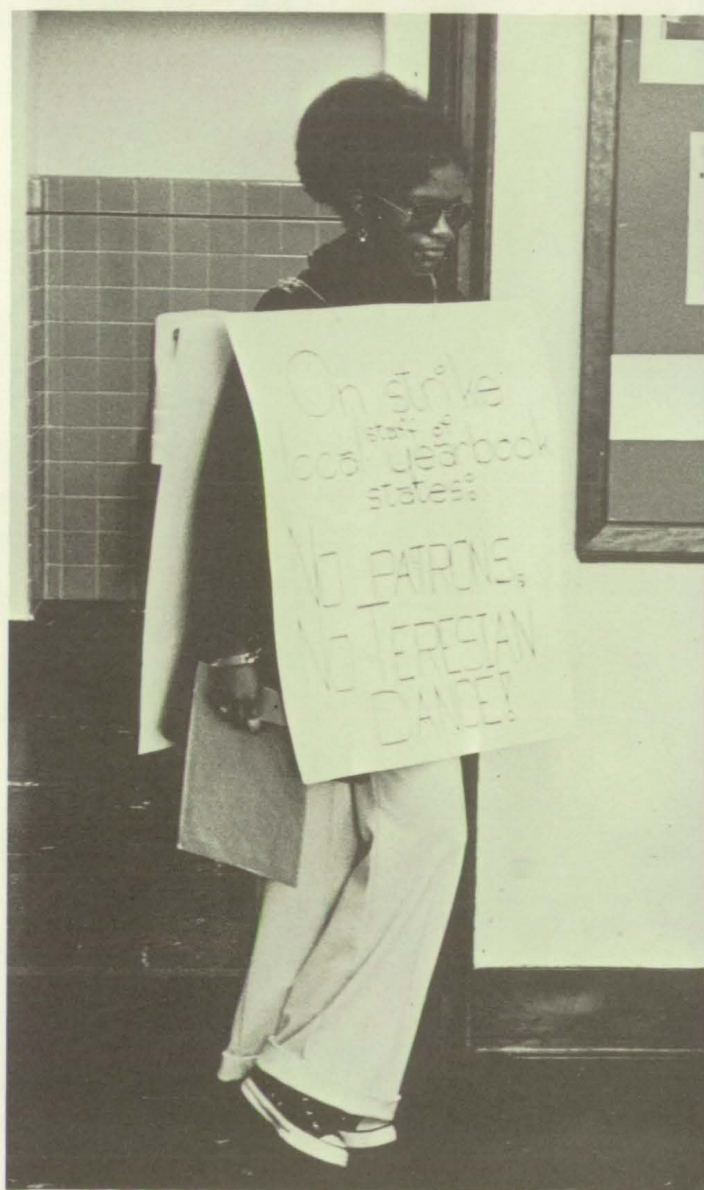 On strike
staff of
local yearbook
states:
NO PATRONS,
NO TERESIAN
DANCE!